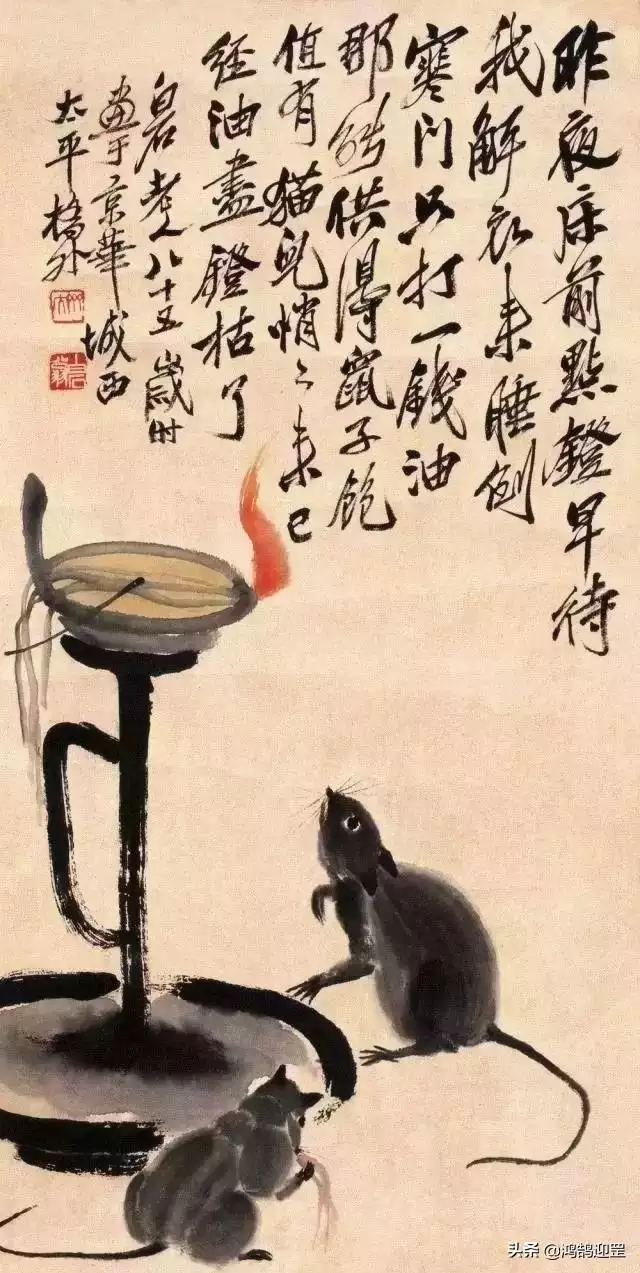 昨夜床前點鐙早待
我解衣来睡倒
寒门只打一錢油
那能供得鼠子飽
值有猫兒悄〻来已
經油盡鐙枯了
白石老人八十五歲时
畫于京華城西
太平橋外
头条 @鸿鹄迎罡